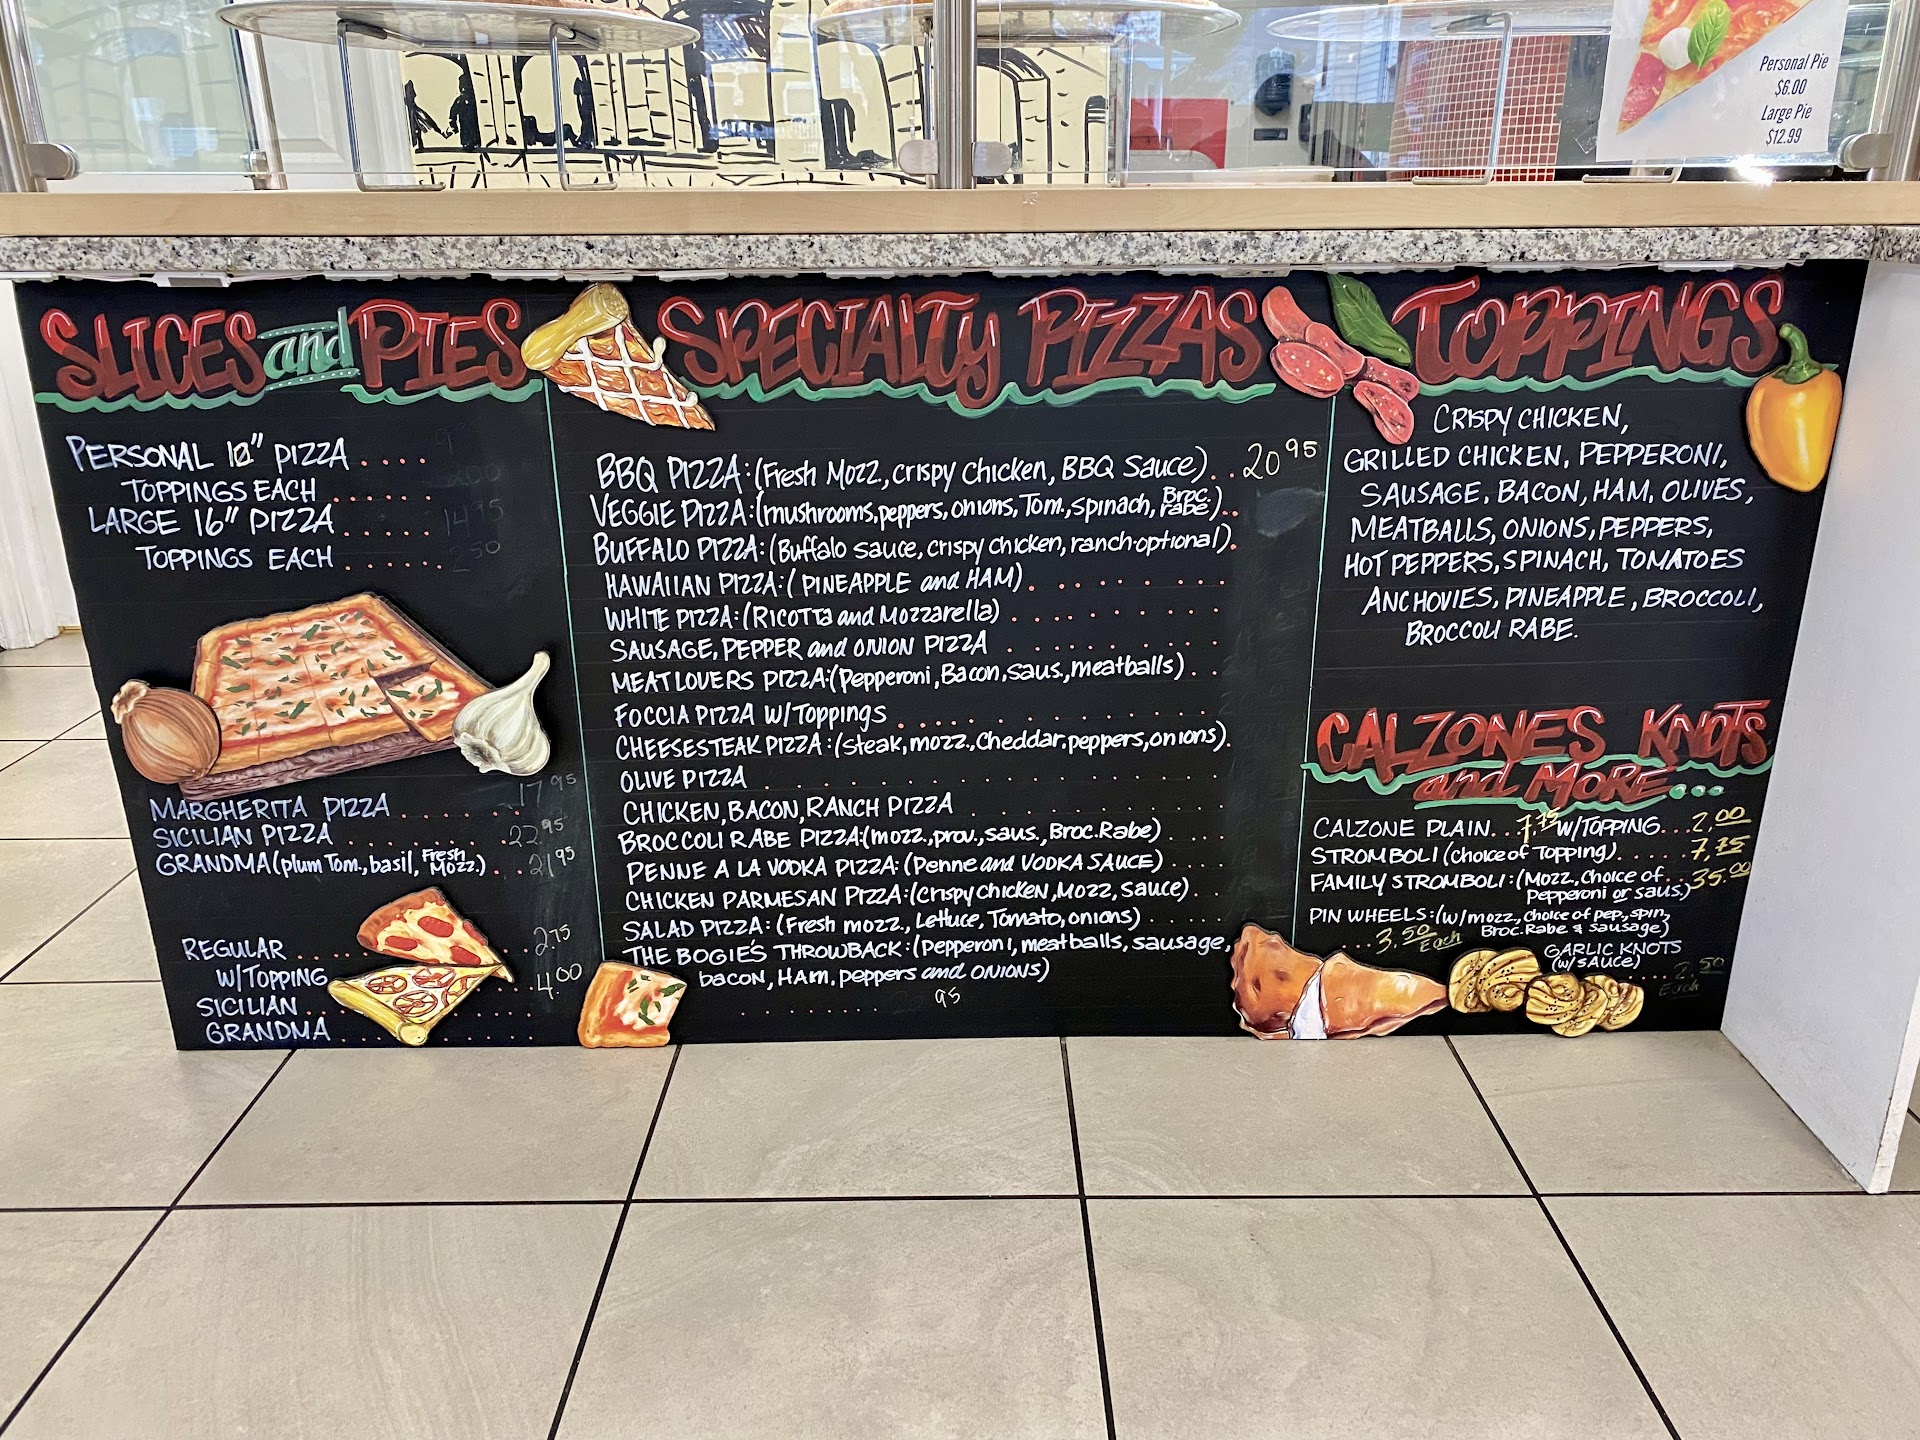 Personal Pie
$6.00
Large Pie
$12.99
SLICES and PIES
PERSONAL 12" PIZZA . . . .
TOPPINGS EACH . . . . . .
LARGE 16" PIZZA . . . . . 14 75
TOPPINGS EACH . . . . . . 2 50
MARGHERITA PIZZA . . . . . 17 95
SICILIAN PIZZA . . . . . 22 95
GRANDMA (plum Tom., basil, Fresh Mozz.) . . 21 95
REGULAR . . . . 2 75
W/TOPPING . . 4.00
SICILIAN . . . .
GRANDMA . . . .
SPECIALTY PIZZAS
BBQ PIZZA: (Fresh Mozz., crispy chicken, BBQ Sauce) . . 20 95
VEGGIE PIZZA: (mushrooms, peppers, onions, Tom., spinach, Broc. rabe) . .
BUFFALO PIZZA: (Buffalo sauce, crispy chicken, ranch-optional).
HAWAIIAN PIZZA: (PINEAPPLE and HAM) . . . . . . .
WHITE PIZZA: (RICOTTA and Mozzarella) . . . . . . . .
SAUSAGE, PEPPER and ONION PIZZA . . . . . . . .
MEAT LOVERS PIZZA: (Pepperoni, Bacon, saus., meatballs) . .
FOCCIA PIZZA W/Toppings . . . . . . . . . .
CHEESESTEAK PIZZA: (steak, mozz., Cheddar, peppers, onions).
OLIVE PIZZA . . . . . . . . . . . . .
CHICKEN, BACON, RANCH PIZZA . . . . . . . .
BROCCOLI RABE PIZZA: (mozz., prov., saus., Broc. Rabe) . .
PENNE A LA VODKA PIZZA: (Penne and VODKA SAUCE) . . .
CHICKEN PARMESAN PIZZA: (Crispy chicken, Mozz, sauce) . .
SALAD PIZZA: (Fresh mozz., Lettuce, Tomato, onions) . . . .
THE BOGIE'S THROWBACK: (Pepperoni, meatballs, sausage,
bacon, Ham, peppers and ONIONS)
. . . . . . . . . 95
TOPPINGS
CRISPY CHICKEN,
GRILLED CHICKEN, PEPPERONI,
SAUSAGE, BACON, HAM, OLIVES,
MEATBALLS, ONIONS, PEPPERS,
HOT PEPPERS, SPINACH, TOMATOES
ANCHOVIES, PINEAPPLE, BROCCOLI,
BROCCOLI RABE.
CALZONES KNOTS
and MORE...
CALZONE PLAIN . . 7.75 W/TOPPING . . . 2.00
STROMBOLI (choice of Topping) . . . . . 7.75
FAMILY STROMBOLI: (Mozz, Choice of . . 35.00
Pepperoni or saus.)
PIN WHEELS: (w/mozz., choice of pep., spin,
Broc. Rabe & sausage)
. . . 3.50 Each
GARLIC KNOTS
(w/SAUCE)
. . . . 2.50
Each